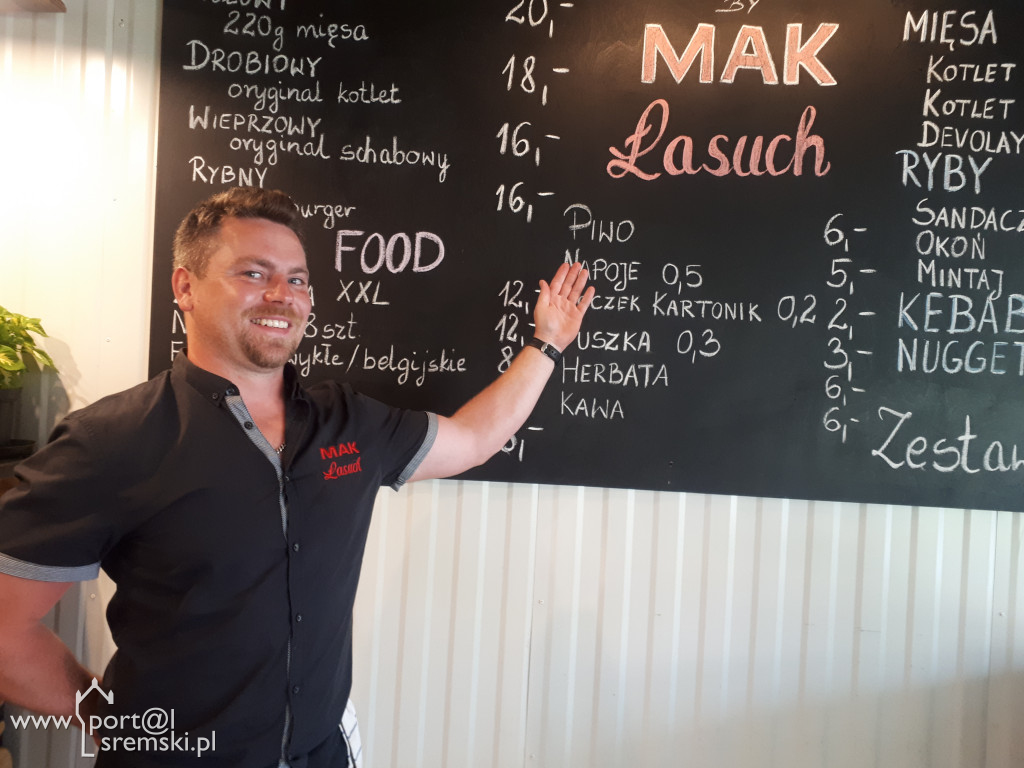 220g mięsa
DROBIOWY
oryginal kotlet
WIEPRZOWY
oryginal schabowy
RYBNY
FOOD
XXL
8 szt
/belgijskie
20,-
18,-
16,-
16,-
12,-
12,-
BY
MAK
Łasuch
PIWO 6,-
NAPOJE 0,5 5,-
KARTONIK 0,2 2,-
PUSZKA 0,3 3,-
HERBATA 6,-
KAWA 6,-
MIĘSA
KOTLET
KOTLET
DEVOLAY
RYBY
SANDACZ
OKOŃ
MINTAJ
KEBAB
NUGGET
MAK
Łasuch
www.
port@l
sremski.pl